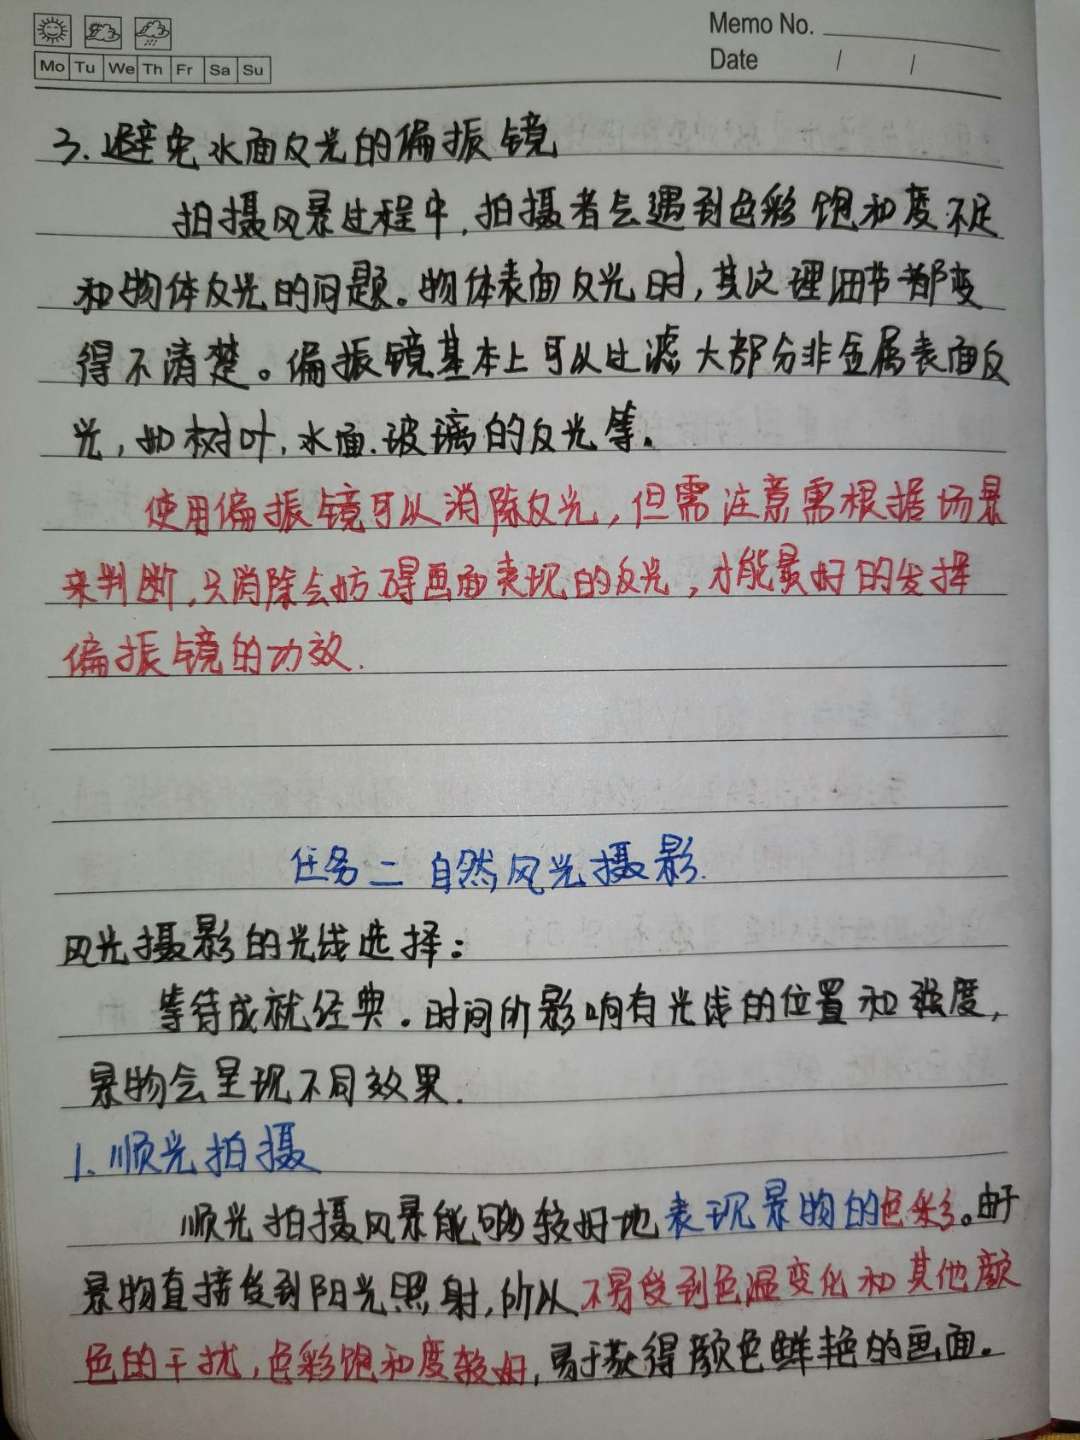 Memo No.
Mo Tu We Th Fr Sa Su
Date / /
3.避免水面反光的偏振镜
拍摄风景过程中,拍摄者会遇到色彩饱和度不足
和物体反光的问题。物体表面反光时,其纹理细节都变
得不清楚。偏振镜基本上可以过滤大部分非金属表面反
光,如树叶,水面.玻璃的反光等。
使用偏振镜可以消除反光,但需注意需根据场景
来判断,只消除会妨碍画面表现的反光,才能最好的发挥
偏振镜的功效.
任务二 自然风光摄影.
风光摄影的光线选择:
等待成就经典.时间所影响有光线的位置和强度,
景物会呈现不同效果.
1.顺光拍摄
顺光拍摄风景能够较好地表现景物的色彩。由于
景物直接受到阳光照射,所以不易受到色温变化和其他颜
色的干扰,色彩饱和度较好,易于获得颜色鲜艳的画面。